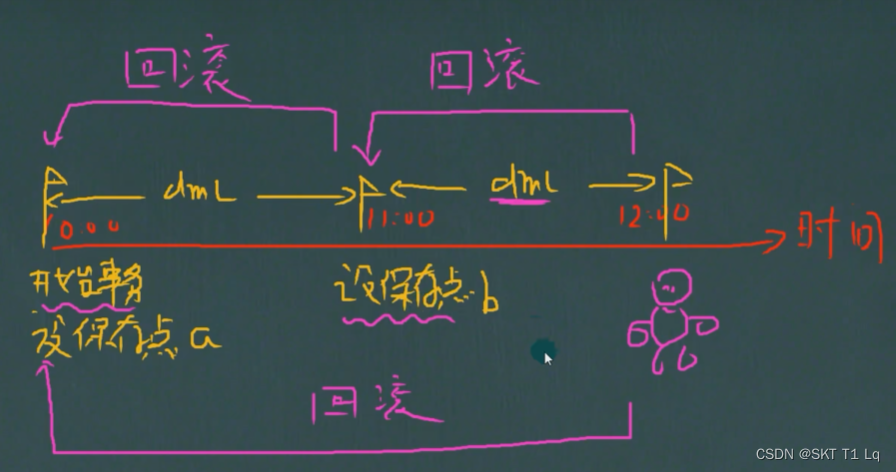 回滚 回滚
dmL dmL
10:00 11:00 12:00 时间
开始事务 设保存点 b
设保存点 a
回滚
CSDN @SKT T1 Lq